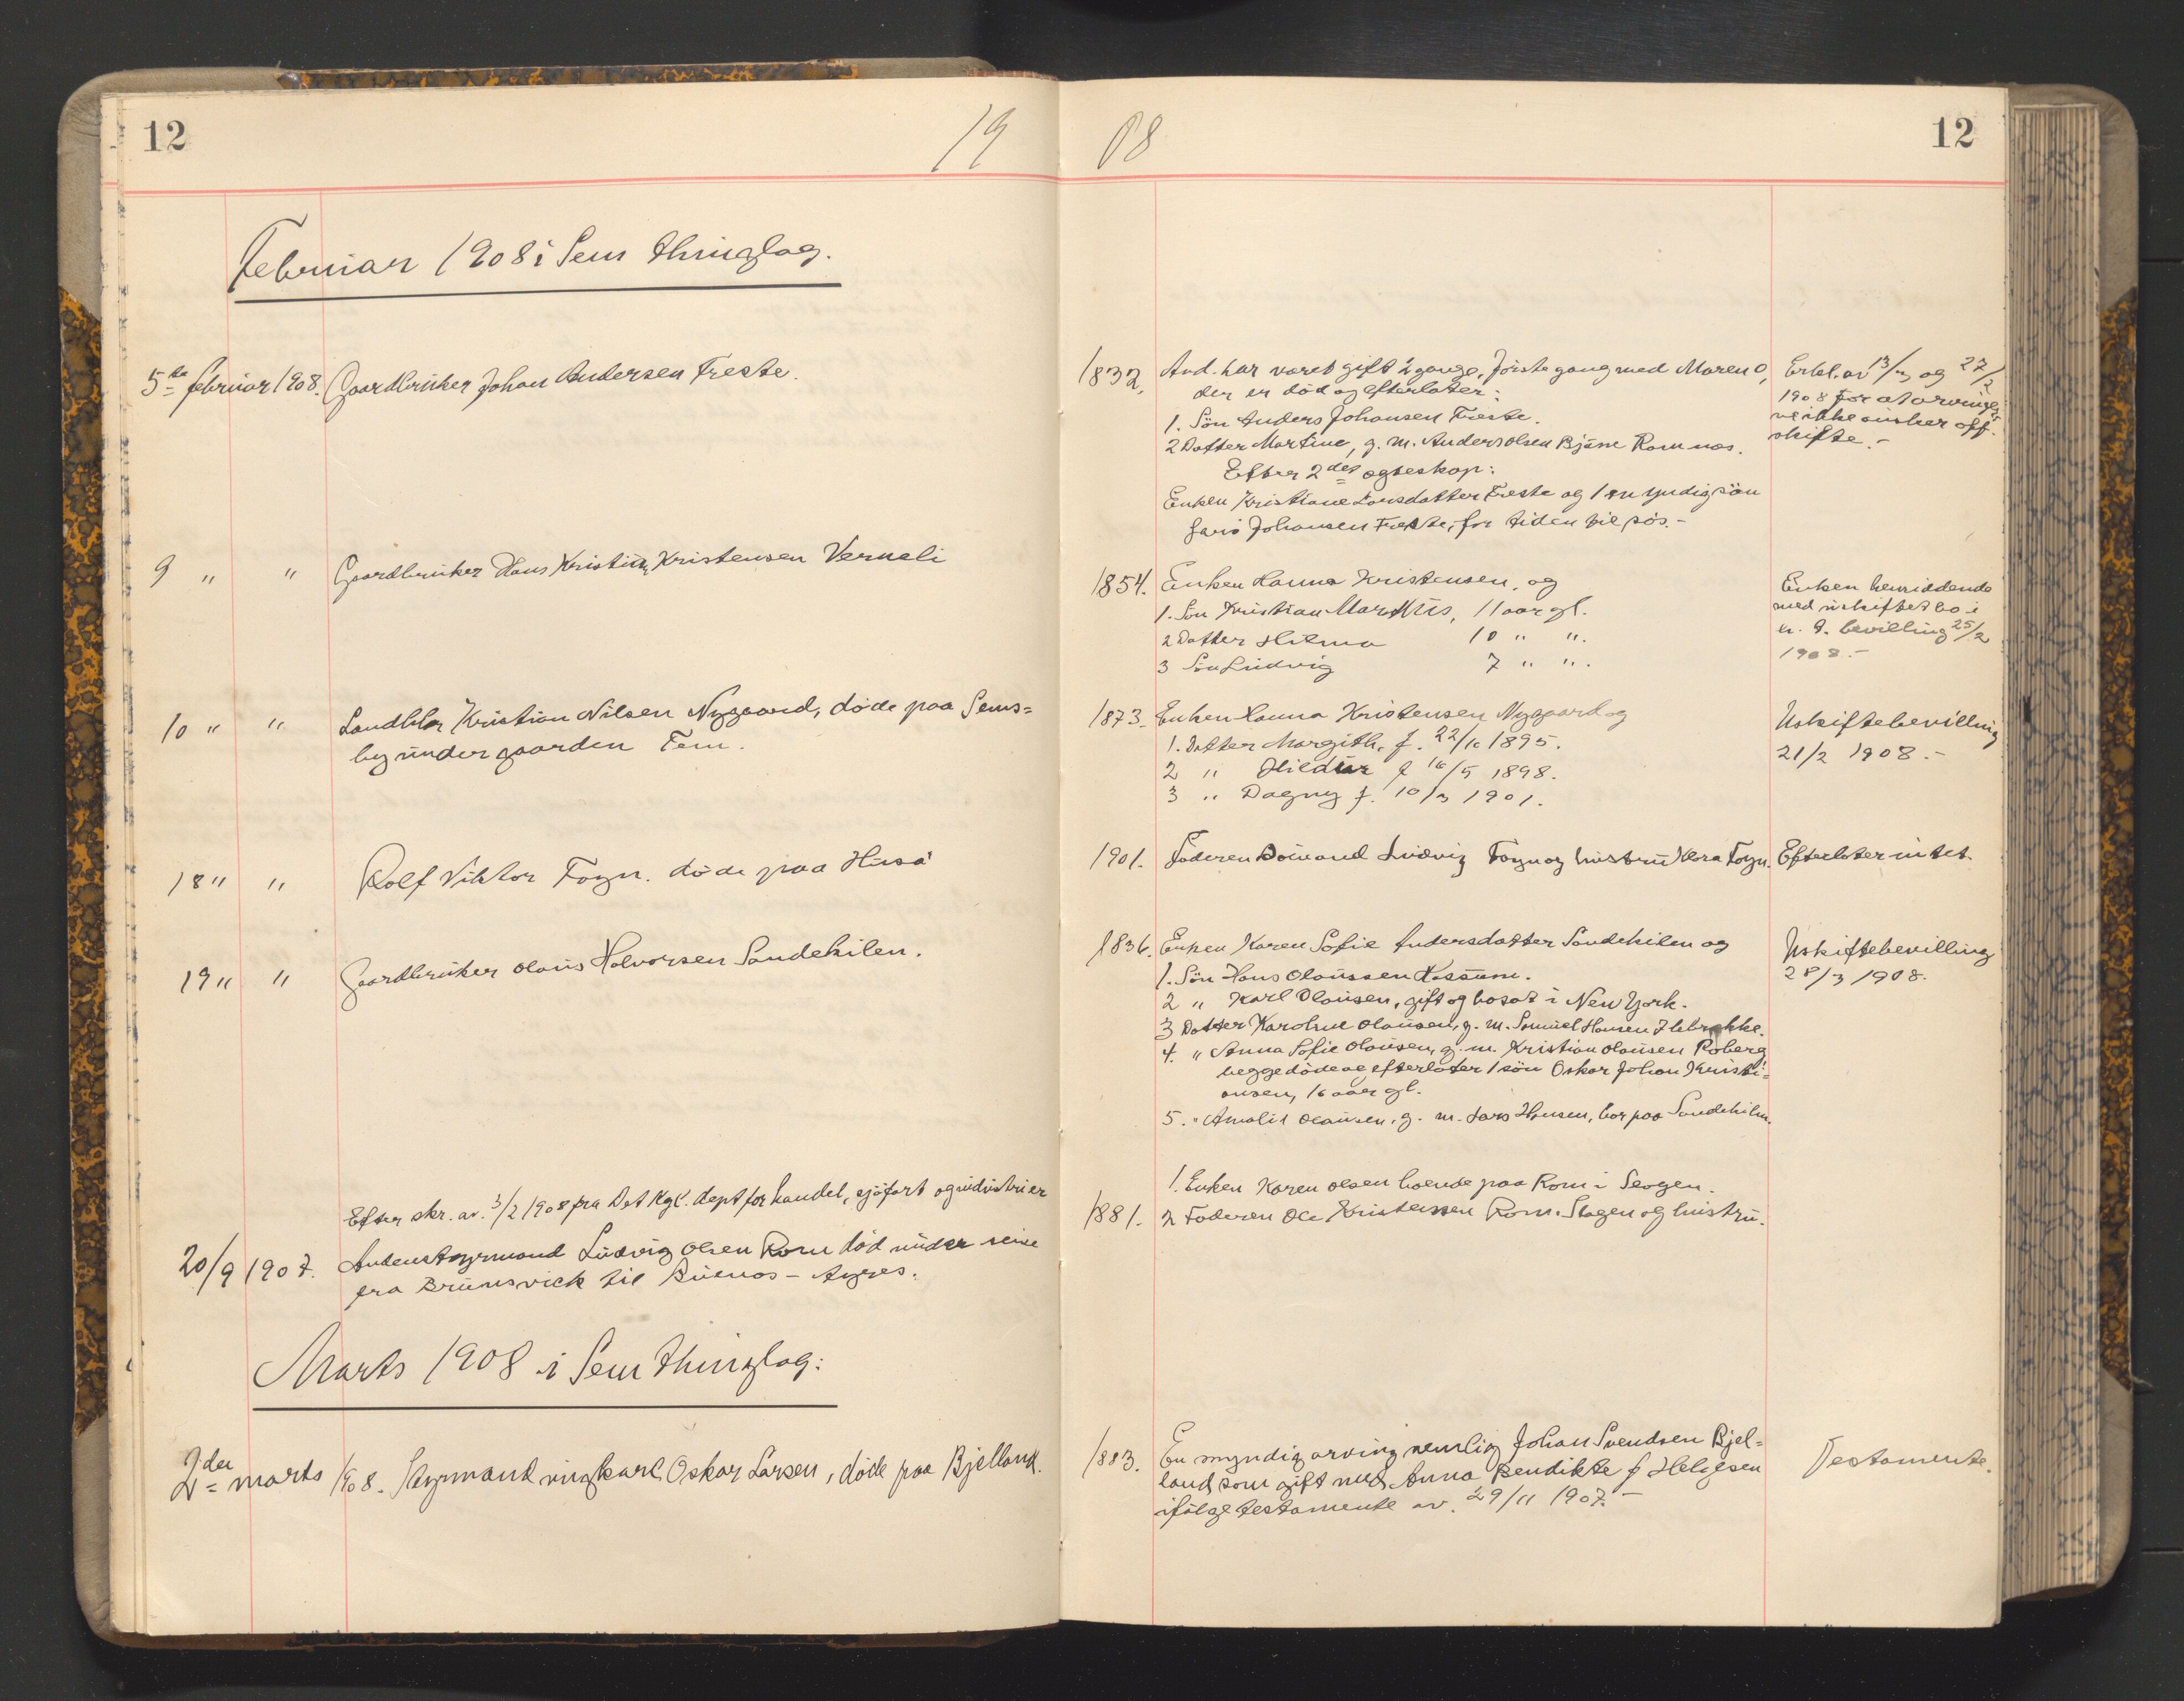 12
19
08
12
Februar 1908 i Sem thinglag.
5te februar 1908. Gaardbruker Johan Andersen Freste.
1832. Avd. har været gift 2 gange, første gang med Maren O,
der er död og efterlater:
1. Sön Anders Johansen Freste.
2 Datter Martine, g. m. Anders Olsen Rom
Efter 2det egteskap:
Enken Kristiane Larsdatter Freste og 1 myndig sön
Johansen Freste, for tiden til sjös.-
Erkl. av 13/2 og 27/2
1908 for at arvinger-
ne ikke önsker off.
skifte.-
9 " " Gaardbruker Hans Kristian Kristensen Verneli
1854. Enken Hanna Kristensen, og
1. Sön Kristian Markus, 11 aar gl.
2 Datter Hilma 10 " ".
3 Sön Ludvig 7 " ".
Enken hensiddende
med uskiftet bo i
h. t. bevilling 25/2
1908.-
10 " " Landhlr Kristian Nilsen Nygaard, döde paa Sems-
by under gaarden Fem.
1873. Enken Hanna Kristensen Nygaard og
1. Datter Margith, f. 22/10 1895.
2 " Hildur f 16/5 1898.
3 " Dagny f. 10/3 1901.
Uskiftebevilling
21/2 1908.-
18 " " Rolf Viktor Fogn. döde paa Husö
1901. Faderen Ludvig Fogn og hustru Klara Fogn.
Efterlater intet.
19 " " Gaardbruker Olaus Halvorsen Sandekilen.
1836. Enken Karen Sofie Andersdatter Sandekilen og
1. Sön Hans Olaussen
2 " Karl Olausen, gift og bosat i New York.
3 Datter Karoline Olausen, g. m. Samuel Hansen
4. " Anna Sofie Olausen, g. m. Kristian Olausen Roberg
begge döde og efterlater 1 sön Oskar Johan Kristi-
ansen, 16 aar gl.
5. " Amalie Olausen, g. m. Lars Hansen, bor paa Sandekilen.
Uskiftebevilling
28/3 1908.
Efter skr. av. 3/2 1908 fra Det Kgl. dept for handel, sjöfart og industri er
20/9 1907. Andenstyrmand Ludvig Olsen Rom död under reise
fra Brunsvick til Buenos-Ayres.
1. Enken Karen Olsen boende paa Rom i Slagen.
1881. 2 Faderen Ole Kristensen Rom. Slagen og hustru.
Marts 1908 i Sem thinglag:
2den marts 1908. Styrmand ungkarl Oskar Larsen, döde paa Bjelland.
1883. En myndig arving nemlig Johan Svendsen Bjel-
land som gift med Anna Bendikte f Helgesen
ifölge testamente av. 29/11 1907.-
Testamente.